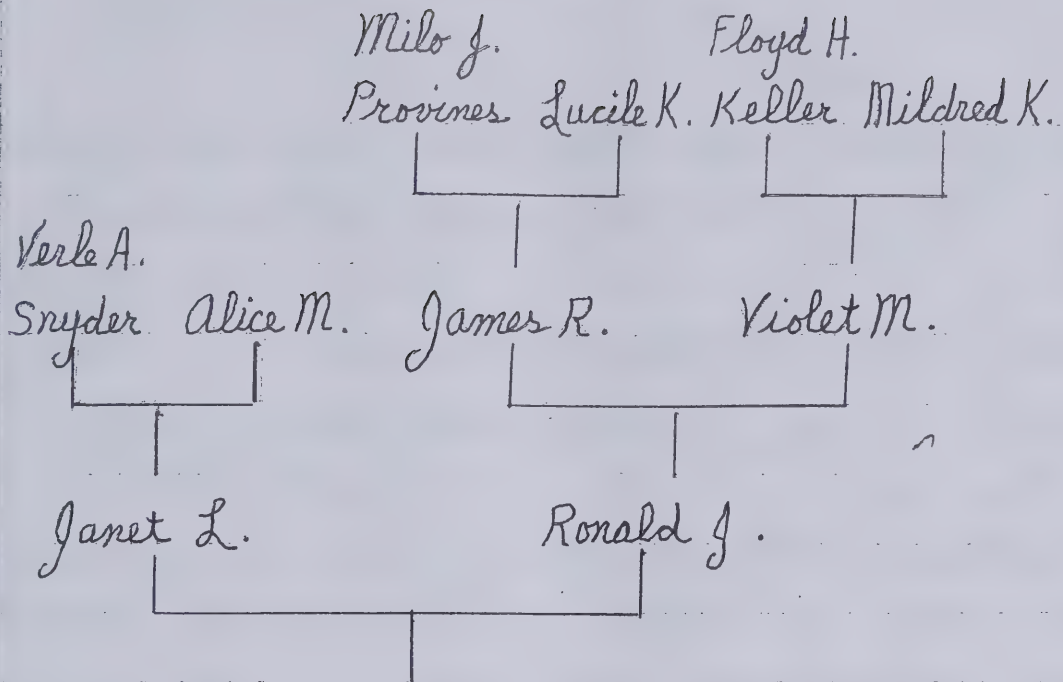 Milo J. Floyd H.
Provines Lucile K. Keller Mildred K.
Verle A.
Snyder Alice M. James R. Violet M.
Janet L. Ronald J.